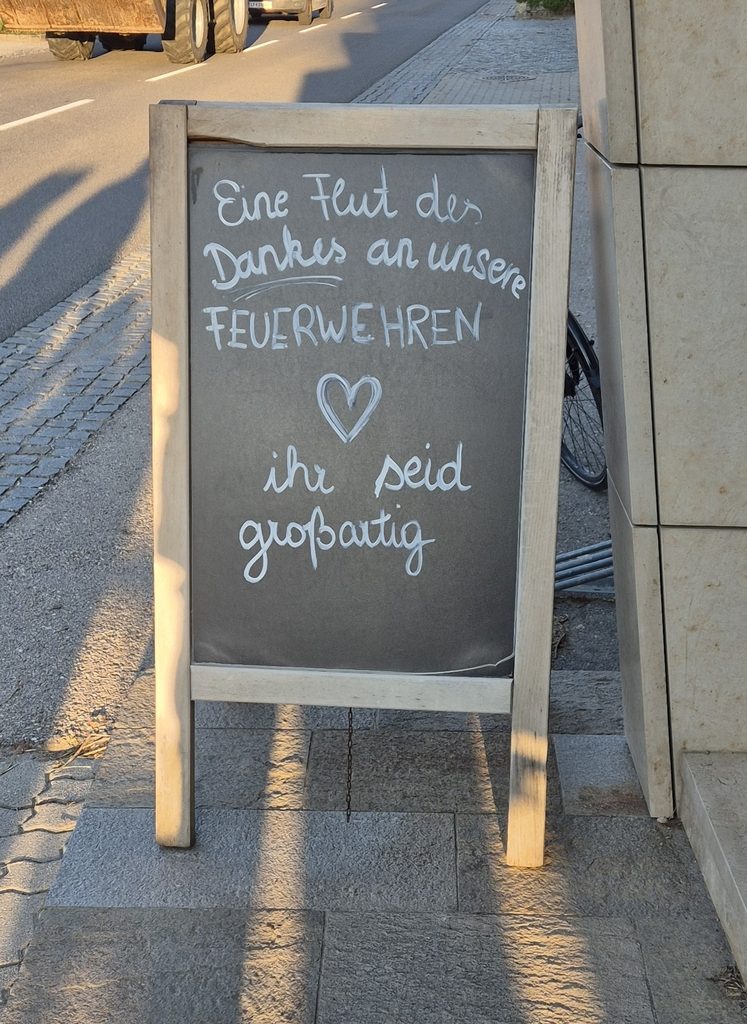 Eine Flut des
Dankes an unsere
FEUERWEHREN
ihr seid
großartig